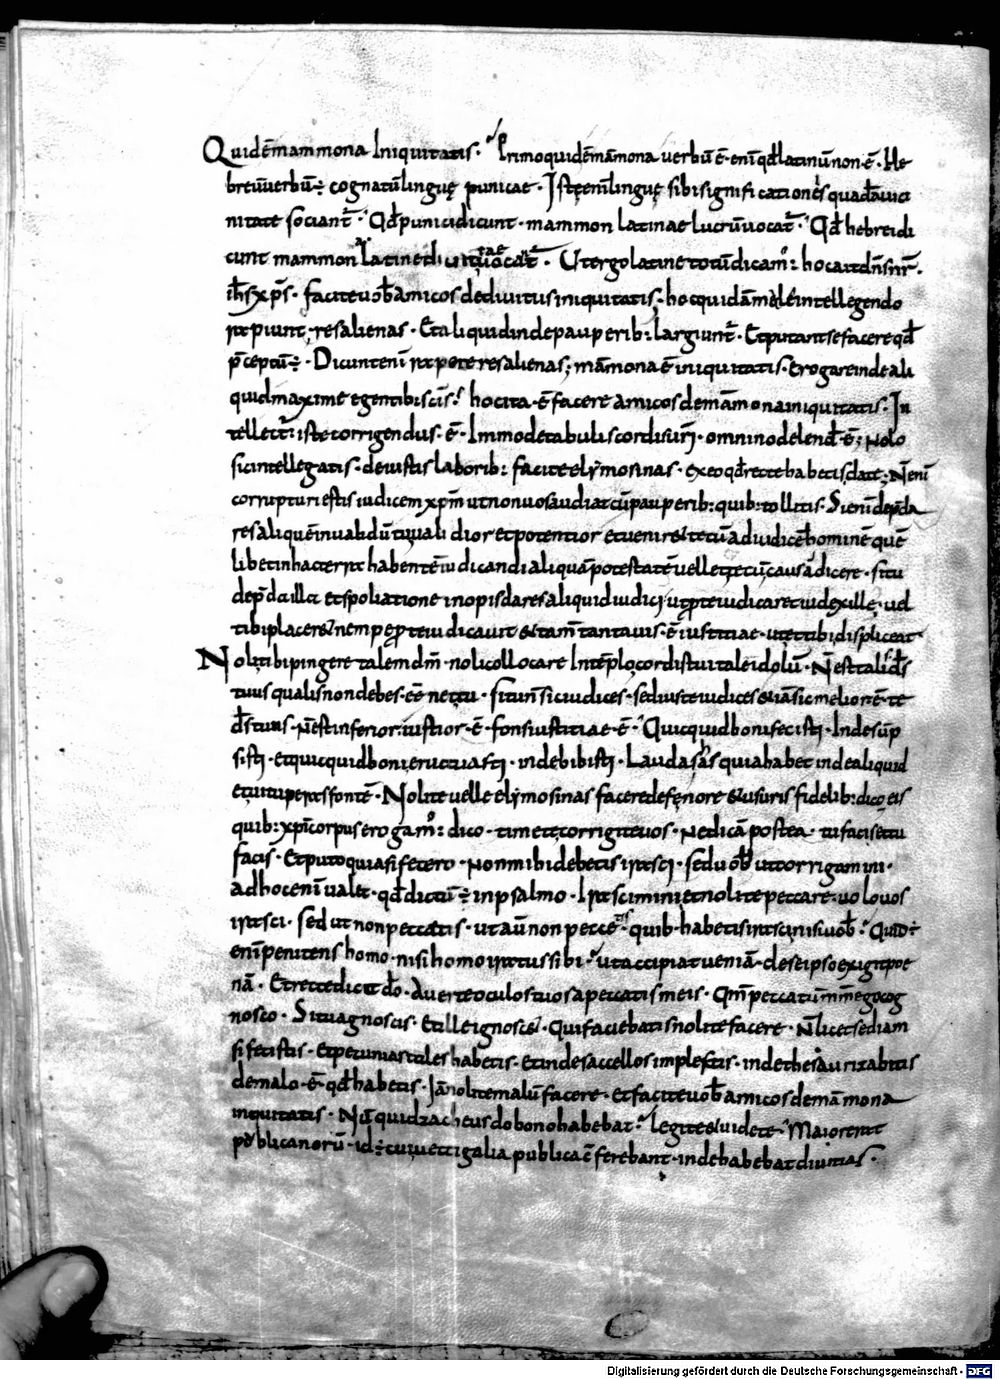 Quidē mammona Iniquitatis. Primo quidē māmona verbū ē. enī qđ latinū non ē. He
breiū verbū ÷ cognatū linguę punicae. Istę enī linguę sibi significationes quadā vici
nitate sociant̄. Qđ punici dicunt. mammon latinae lucrū vocat̄. Qđ hebrei di
cunt mammon latine diuitiae vocat̄. Ut ergo latine totū dicam᷒: hoc ait dn̄s nr̄.
ih̄s xp̄s. facite vob̄ amicos de divitiis iniquitatis; hoc quidā male intellegendo
rapiunt; res alienas. Et aliquid inde pauperib: largiunt̄. Et putant se facere qđ
p̄ceptū ÷. Dicunt enī rapere res alienas; māmona ē iniquitatis. Erogare inde ali
quid maxime egentibus sc̄is; hoc ita. ē facere amicos de māmona iniquitatis. In
tellect᷒ iste corrigendus. ē. Immo de tabulis cordis uri. omnino delend᷒ ē; Nolo
sic intellegatis. de iustis laborib: facite elymosinas. ex eo qđ recte habetis date; N̄ enī
corrupturi estis iudicem xp̄m ut non vos audiat cū pauperib: quib: tollitis. Si enī dep̄da
res aliquē invalidū tu validior et potentior et veniret tecū ad iudicē hominē quē
libet in hac terra habentē iudicandi aliquā potestatē vellet tecū causā dicere. si tu
de p̄da illa et spoliatione inopis dares aliquid iudici ut p te iudicaret iudex ille; vel
tibi placeret nempe p te iudicavit & tam̄ tanta vis. ē iustitiae. ut et tibi displiceat
Noli tibi pingere talem dm̄. noli collocare In templo cordis tui tale idolū. N̄ est talis dš
tuus qualis non debes. eē nec tu. si tu n̄ sic iudices. sed iuste iudices & iā sic melior ē te
dš tuus. n̄ est inferior. iustior. ē. fons iustitiae ē. Quicquid boni fecisti. Inde sūp
sisti. et quicquid boni eructuasti. inde bibisti. Laudas vas quia habet inde aliquid
et vituperas fontē. Nolite velle elymosinas facere de fęnore & usuris fidelib: dico eis
quib: xp̄i corpus erogam᷒: dico. timete, corrigite vos. ne dicā postea. tu facis et tu
facis. Et puto quia si fecero. non mihi debetis irasci. sed vob̄ ut corrigamini.
ad hoc enī valet. qđ dictū ÷ in psalmo. Irascimini et nolite peccare. volo vos
irasci. sed ut non peccetis. ut aū non peccetis. quib. habetis irasci, nisi vob̄. Quid ÷
enī penitens homo. nisi homo iratus sibi. ut accipiat veniā. de se ipso exigit poe
nā. Et recte dicit dō. Averte oculos tuos a peccatis meis. Qm̄ peccatū m̄m ego cog
nosco. Si tu agnoscis. Et ille ignoscet. Qui faciebatis nolite facere. N̄ licet sed iam
si fecistis. et pecunias tales habetis. et inde saccellos implestis. inde thesaurizabatis
de malo. ē qđ habetis. Iā nolite malū facere. et facite vob̄ amicos de māmona
iniquitatis. Nū quid zacheus de bono habebat. Legite & videte. Maior erat
publicanorū. id ÷ cui vectigalia publica cferebant. inde habebat divitias.
Digitalisierung gefördert durch die Deutsche Forschungsgemeinschaft - DFG